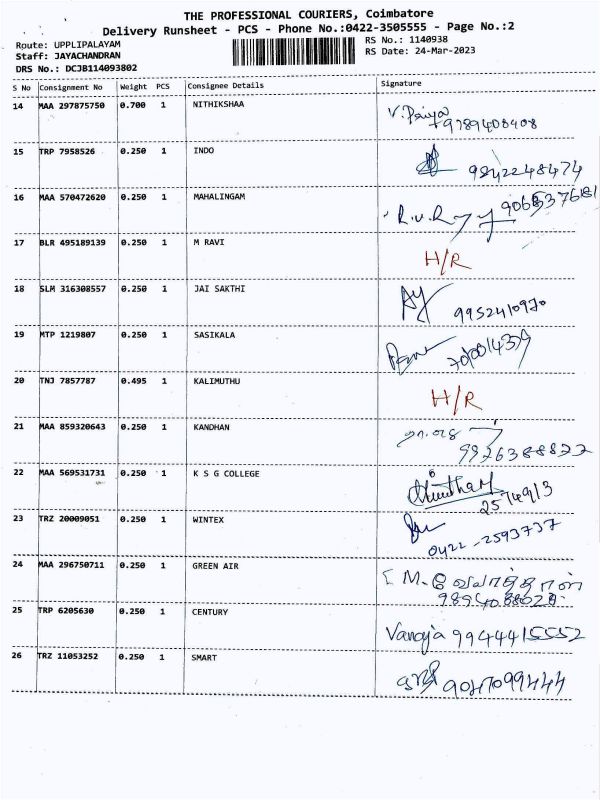 THE PROFESSIONAL COURIERS, Coimbatore
Delivery Runsheet - PCS - Phone No.:0422-3505555 - Page No.:2
Route: UPPLIPALAYAM
Staff: JAYACHANDRAN
DRS No.: DCJB114093802
RS No.: 1140938
RS Date: 24-Mar-2023
S No Consignment No Weight PCS Consignee Details Signature
14 MAA 297875750 0.700 1 NITHIKSHAA V. Priya
9789408408
15 TRP 7958526 0.250 1 INDO 9842248474
16 MAA 570472620 0.250 1 MAHALINGAM
17 BLR 495189139 0.250 1 M RAVI H/R
18 SLM 316308557 0.250 1 JAI SAKTHI 9952410970
19 MTP 1219807 0.250 1 SASIKALA
20 TNJ 7857787 0.495 1 KALIMUTHU H/R
21 MAA 859320643 0.250 1 KANDHAN
22 MAA 569531731 0.250 1 K S G COLLEGE
2574913
23 TRZ 20009051 0.250 1 WINTEX
0422-2593737
24 MAA 296750711 0.250 1 GREEN AIR
25 TRP 6205630 0.250 1 CENTURY Vanaja 9944415552
26 TRZ 11053252 0.250 1 SMART 9047099444